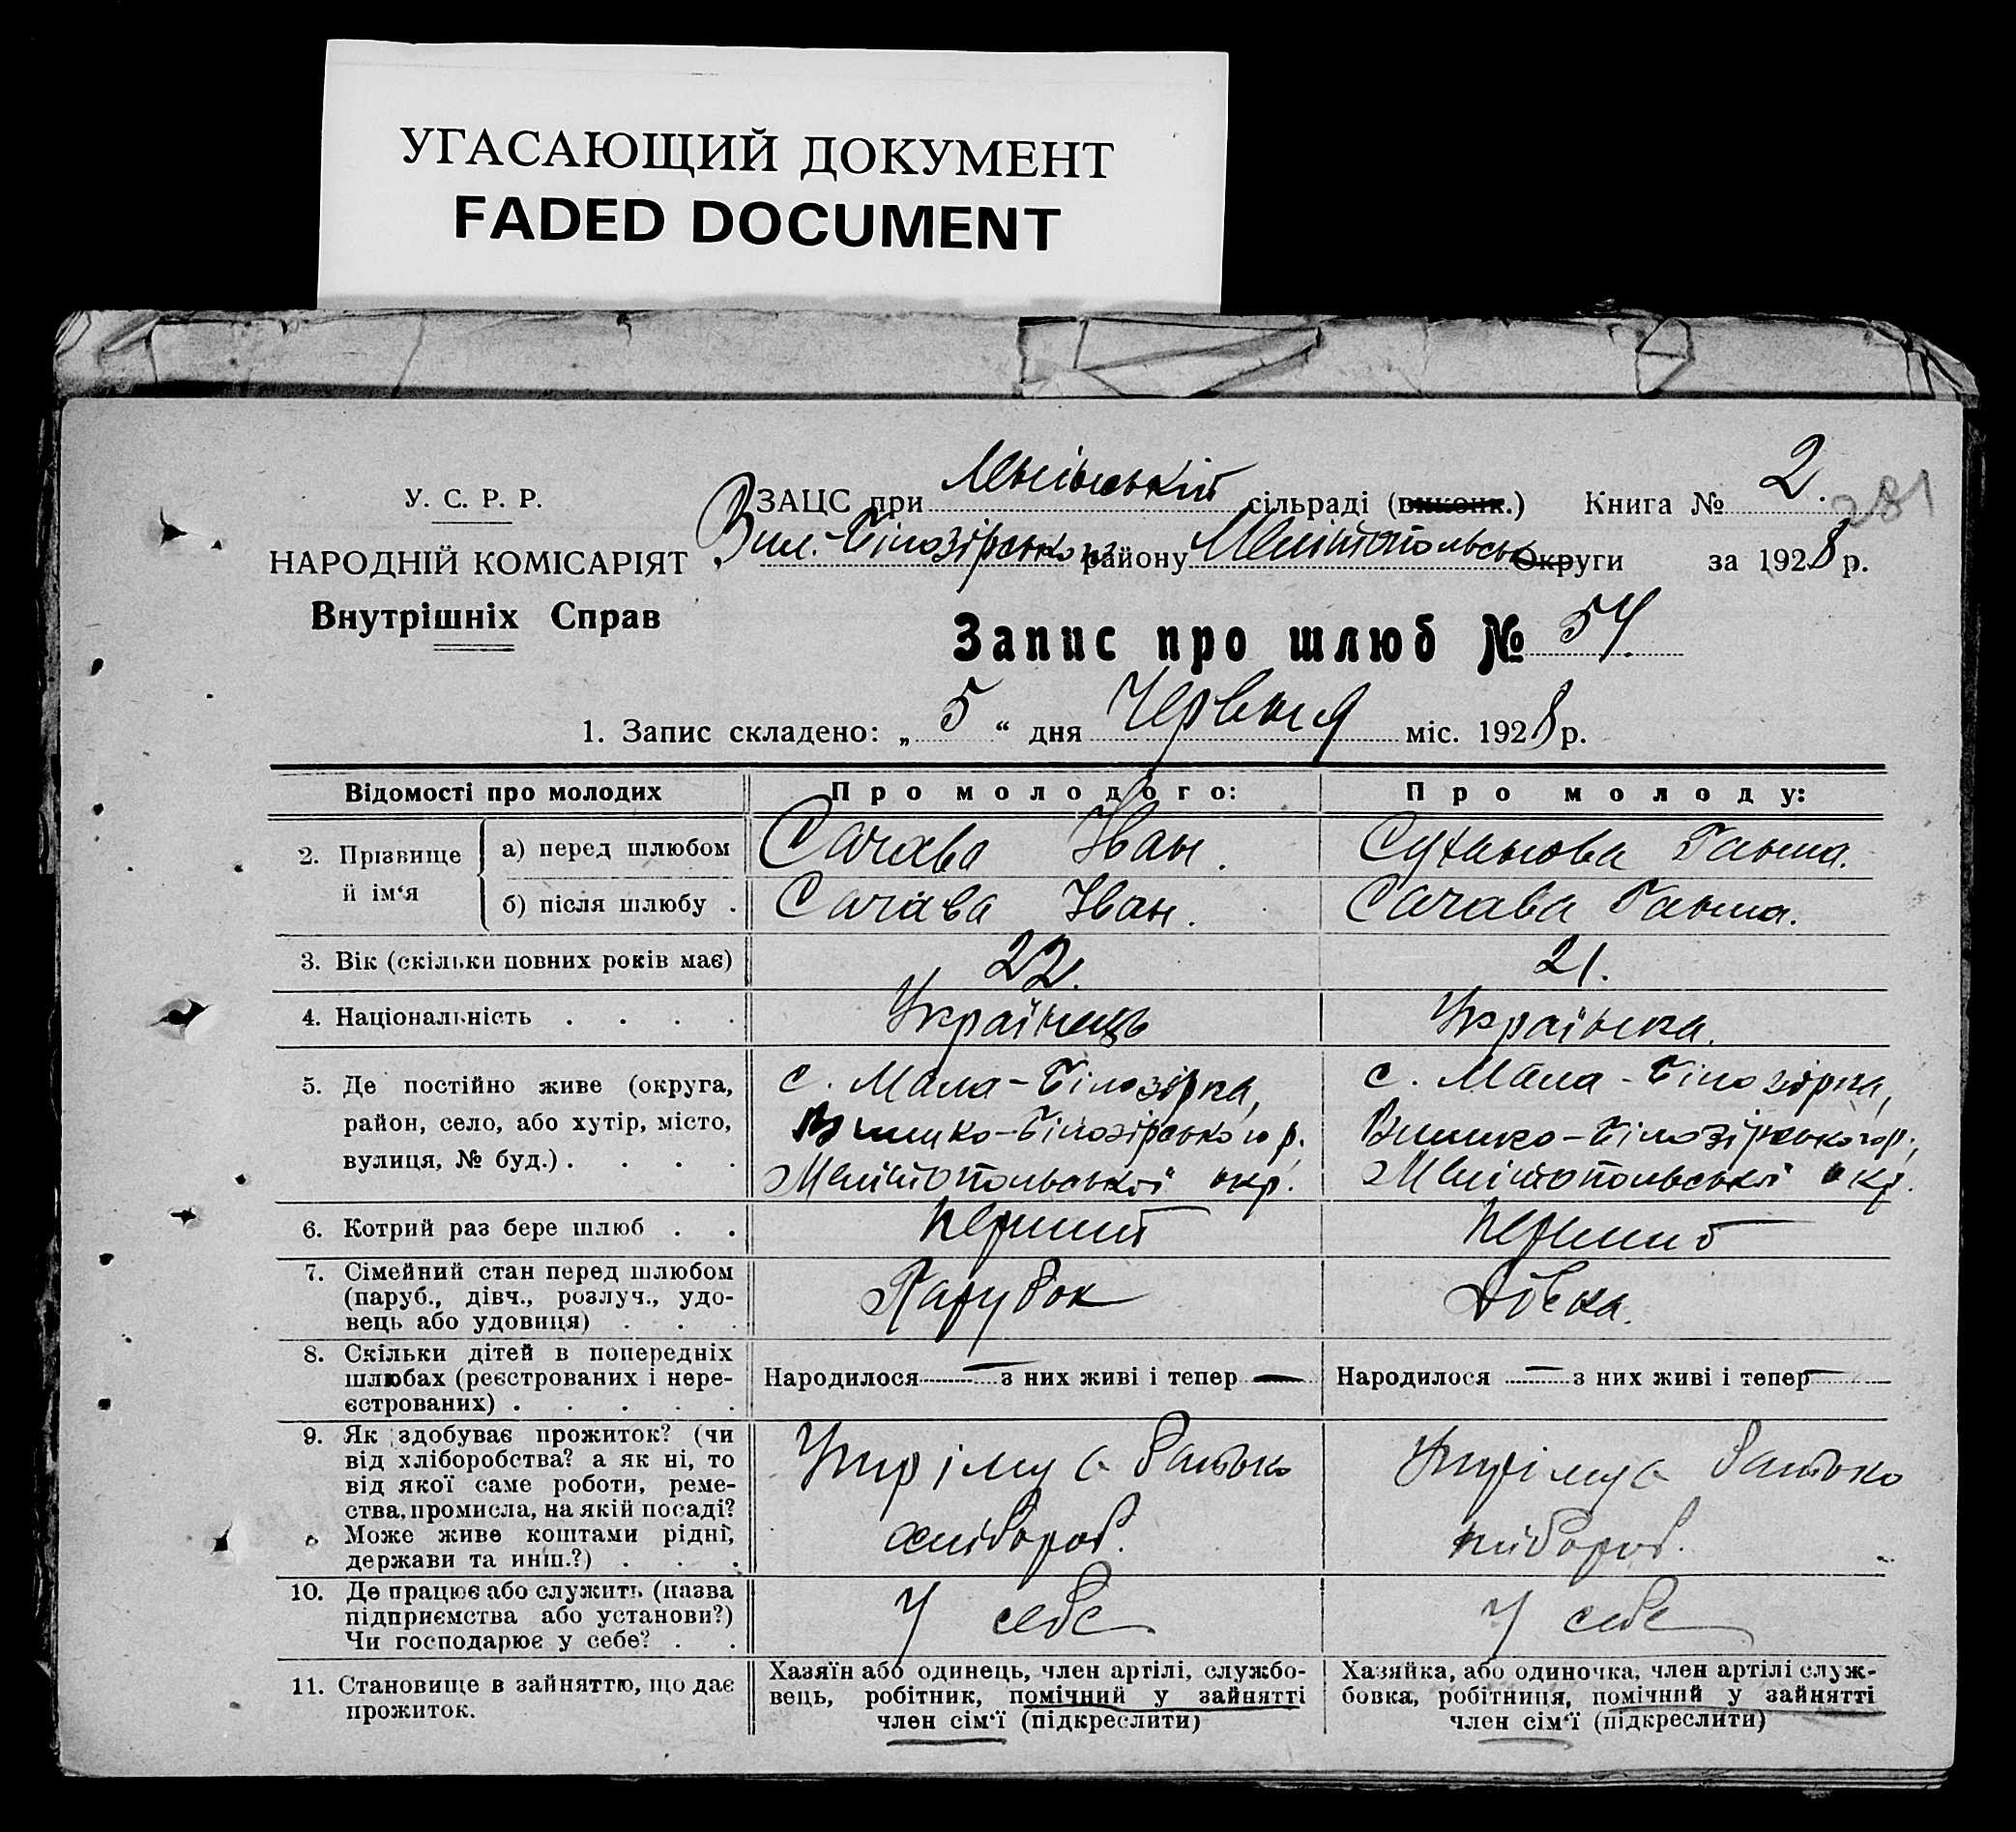 УГАСАЮЩИЙ ДОКУМЕНТ
FADED DOCUMENT
У. С. Р. Р.
НАРОДНІЙ КОМІСАРІЯТ
Внутрішніх Справ
ЗАЦС при сільраді (виконк.) Книга № 2.
281
Вил.-Білозірського району Мелітопольськ Округи за 1928 р.
Запис про шлюб № 54
1. Запис складено: „ 5 “ дня Червня міс. 1928 р.
Відомості про молодих
Про молодого:
Про молоду:
2. Прізвище й ім‘я
а) перед шлюбом
Сачава Іван.
Суханова Ганна.
б) після шлюбу .
Сачава Іван.
Сачава Ганна.
3. Вік (скільки повних років має)
22.
21.
4. Національність . . . .
Українець
Українка.
5. Де постійно живе (округа,
район, село, або хутір, місто,
вулиця, № буд.) . . . .
с. Мала-Білозірка,
Вилико-Білозірського р.
Мелітопольської окр.
с. Мала-Білозірка,
Вилико-Білозірського р.,
Мелітопольської окр.
6. Котрий раз бере шлюб . .
Перший
Перший
7. Сімейний стан перед шлюбом
(паруб., дівч., розлуч., удо-
вець або удовиця) . . .
Парубок
Дівка.
8. Скільки дітей в попередніх
шлюбах (реєстрованих і нере-
єстрованих) . . . . .
Народилося — з них живі і тепер —
Народилося — з них живі і тепер —
9. Як здобуває прожиток? (чи
від хліборобства? а як ні, то
від якої саме роботи, реме-
ства, промисла, на якій посаді?
Може живе коштами рідні,
держави та инш.?) . . .
Утрімує батько
хлібороб.
Утрімує батько
хлібороб.
10. Де працює або служить (назва
підприємства або установи?)
Чи господарює у себе? . .
У себе
У себе
11. Становище в зайняттю, що дає
прожиток.
Хазяїн або одинець, член артілі, службо-
вець, робітник, помічний у зайнятті
член сім‘ї (підкреслити)
Хазяйка, або одиночка, член артілі служ-
бовка, робітниця, помічний у зайнятті
член сім‘ї (підкреслити)